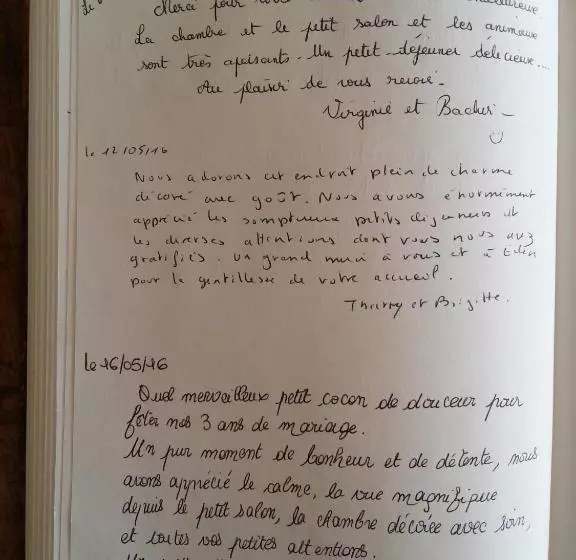 Merci pour
La chambre et le petit salon et les animaux
sont très apaisants. Un petit déjeuner délicieux....
Au plaisir de vous revoir.
Virginie et
le 12/05/16
Nous adorons cet endroit plein de charme
décoré avec goût. Nous avons énormément
apprécié les somptueux petits déjeuners et
les diverses attentions dont vous nous avez
gratifiés. Un grand merci à vous et à
pour la gentillesse de votre accueil.
Thierry et Brigitte.
le 16/05/16
Quel merveilleux petit cocon de douceur pour
fêter nos 3 ans de mariage.
Un pur moment de bonheur et de détente, nous
avons apprécié le calme, la vue magnifique
depuis le petit salon, la chambre décorée avec soin,
et toutes vos petites attentions.